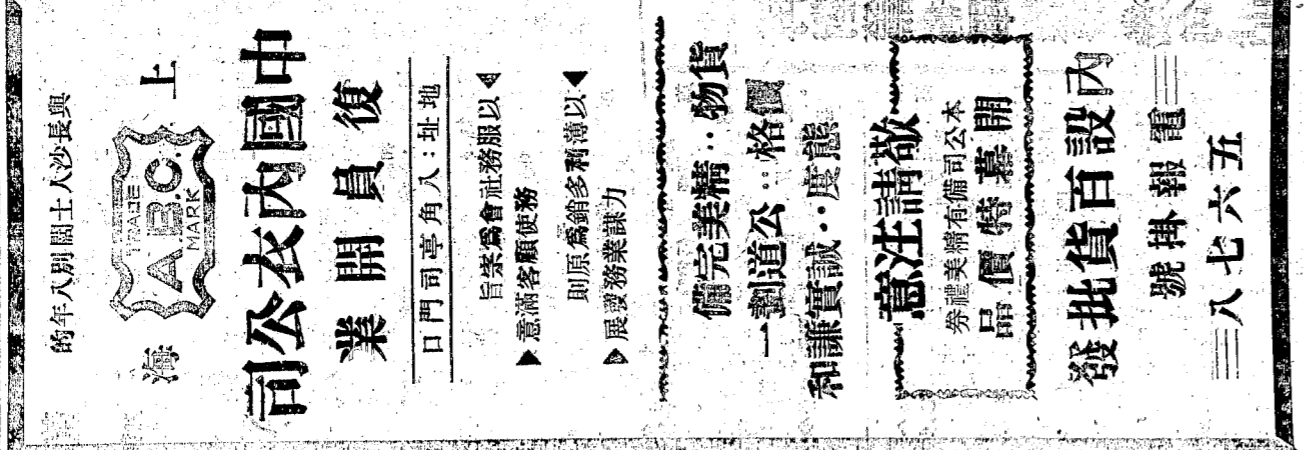 與長沙人士闊別八年的
上海
TRADE
A.B.C.
MARK
中國內衣公司
復員開業
地址：八角亭司門口
◀以服務社會爲宗旨
務使顧客滿意▶
◀以薄利多銷爲原則
力謀業務發展▶
貨物：精美完備
價格：公道劃一
態度：誠實謙和
敬請注意
本公司備有精美禮券
開慕特價品
內設百貨批發
電報掛號
五六七八